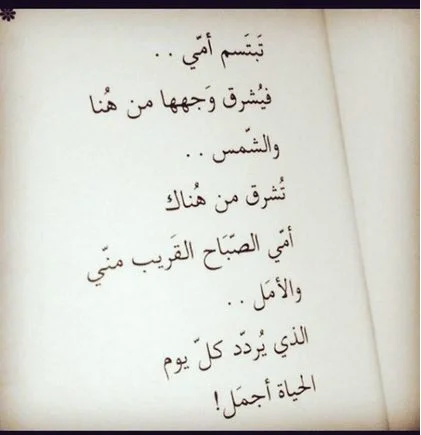 تَبتَسم أمّي . .
فيُشرق وَجهها من هُنا
والشّمس . .
تُشرق من هُناك
أمّي الصّبَاح القَريب منّي
والأمَل . .
الذي يُردّد كلّ يوم
الحياة أجمَل!